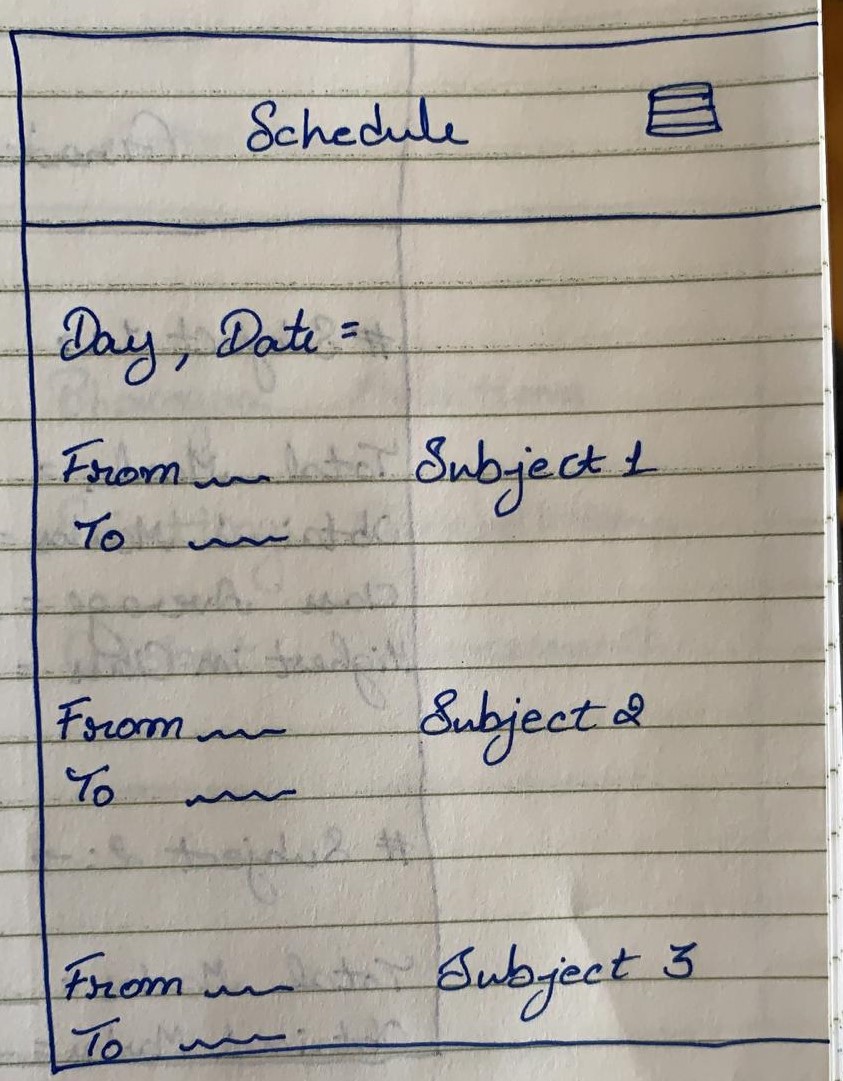 Schedule
Day, Date =
From Subject 1
To
From Subject 2
To
From Subject 3
To